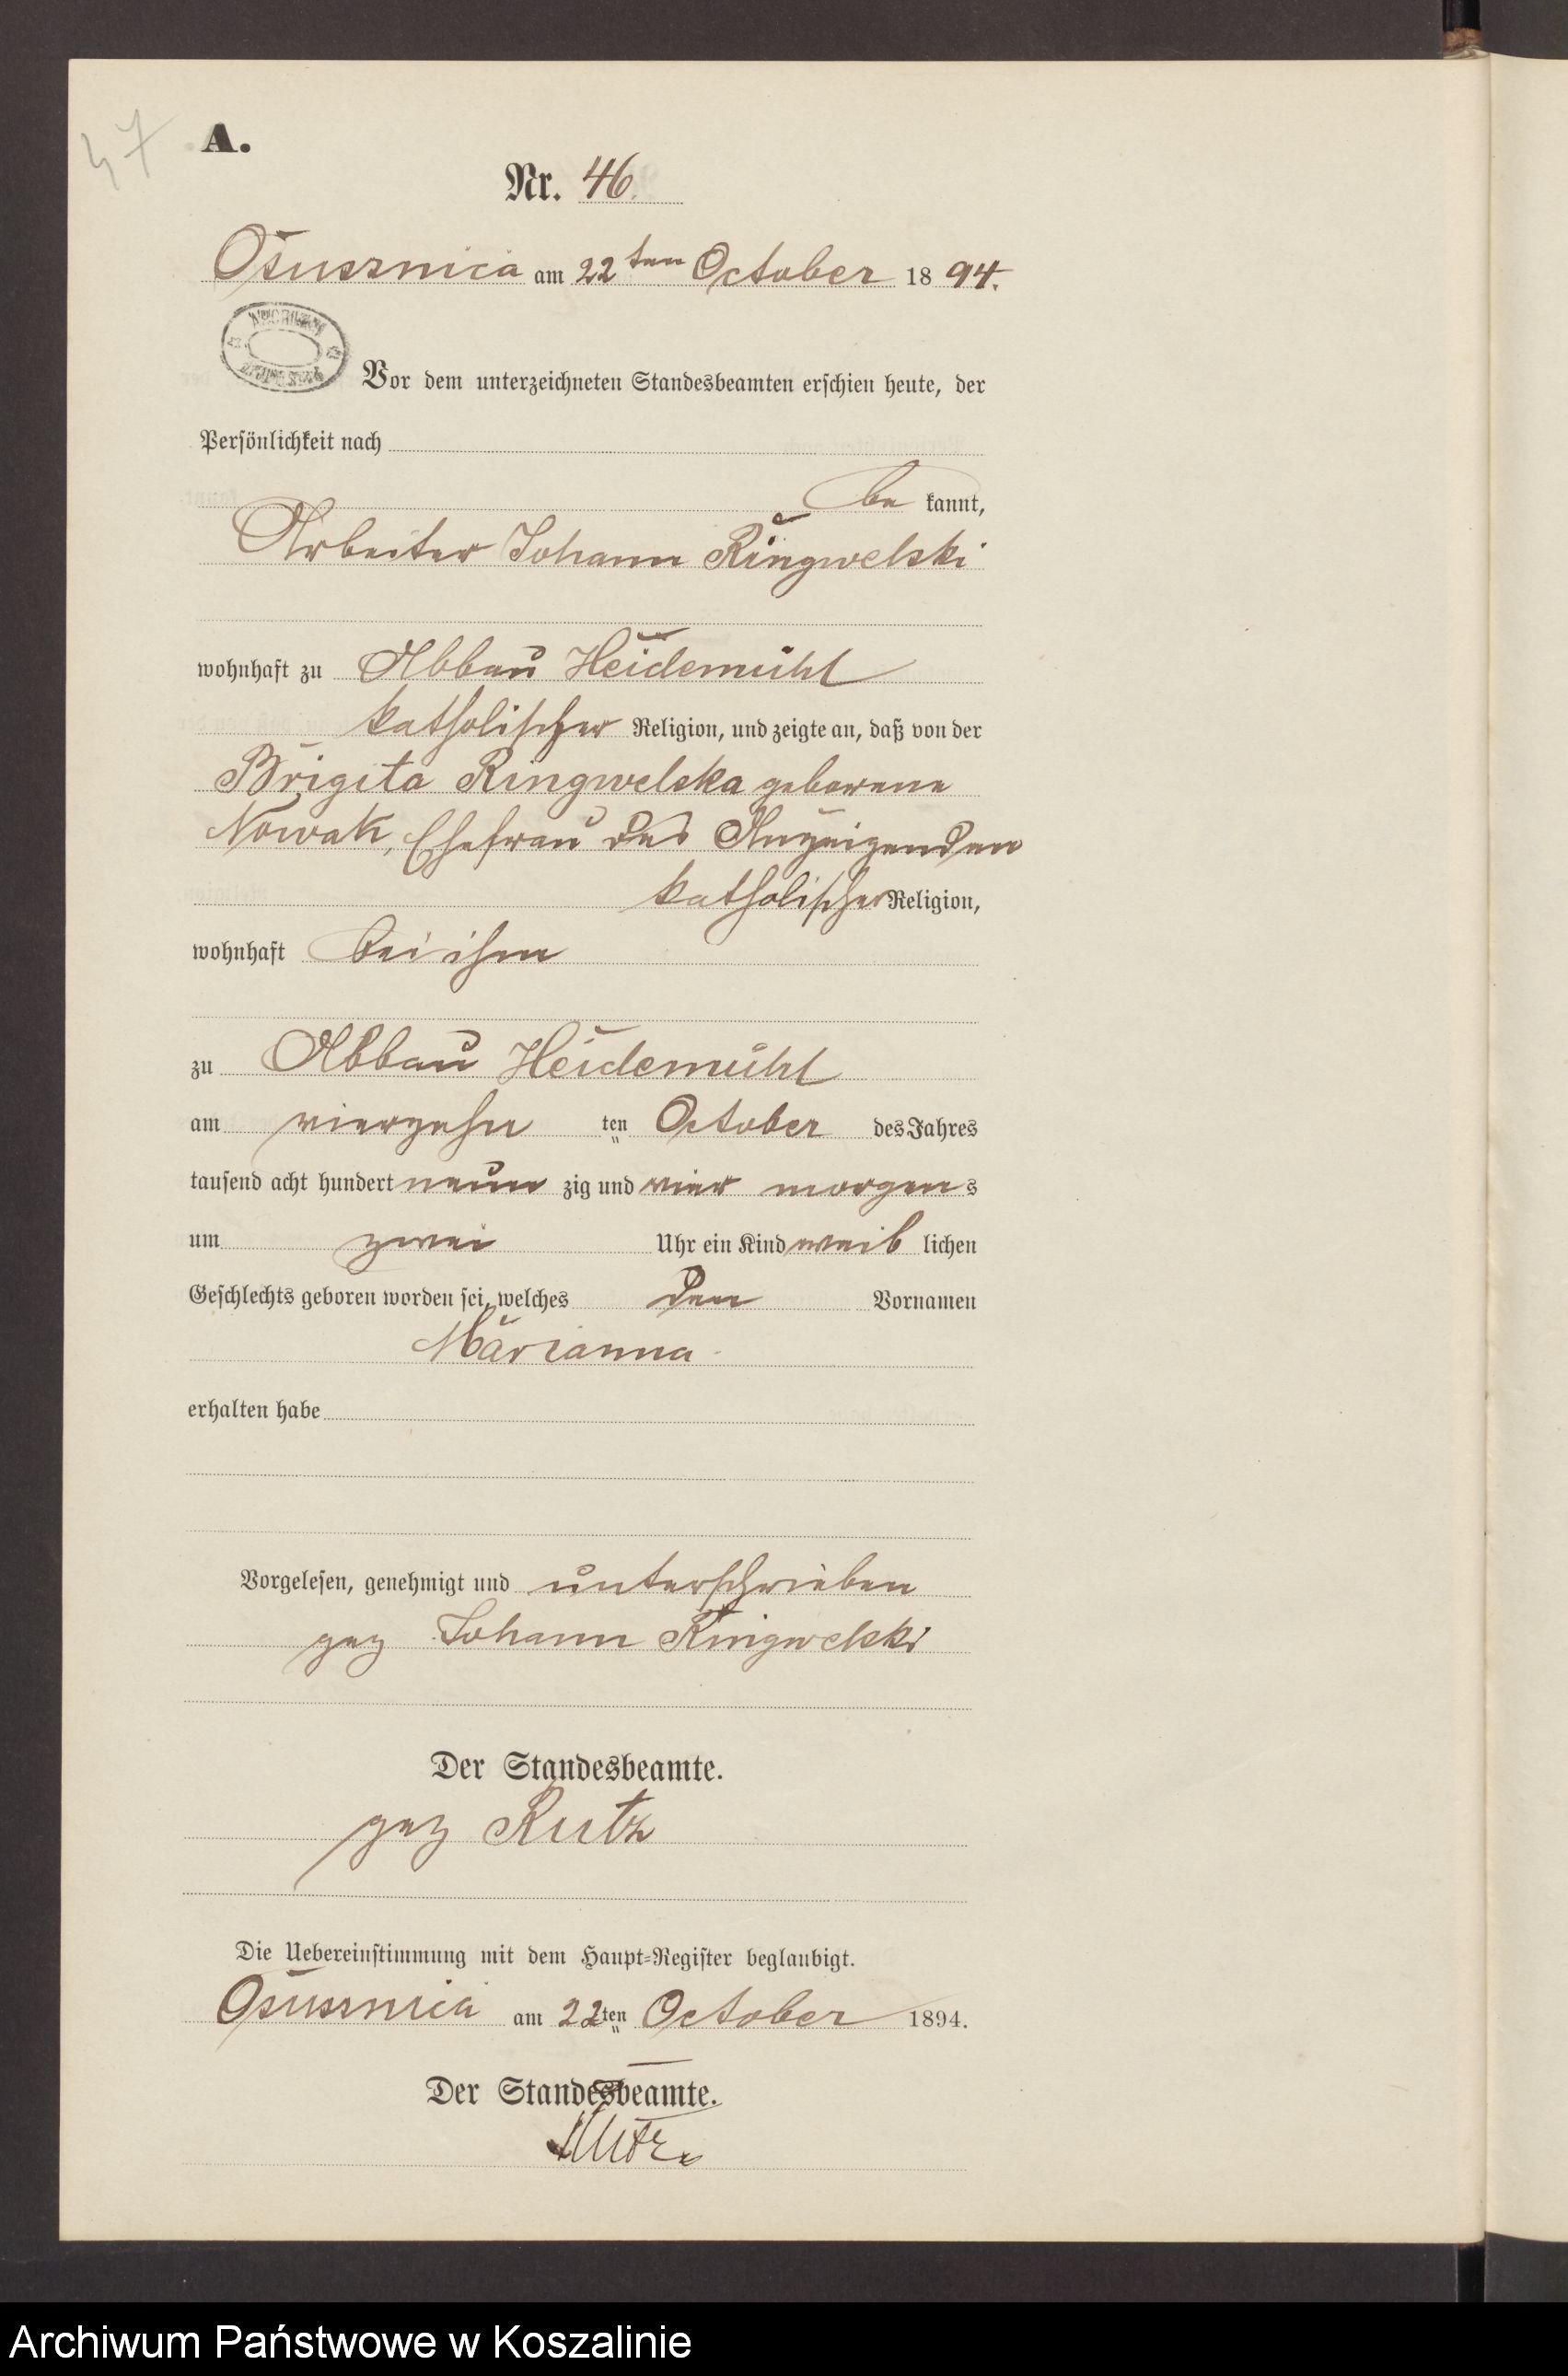 47
A.
Nr. 46.
Osusznica am 22ten October 1894.
Vor dem unterzeichneten Standesbeamten erschien heute, der
Persönlichkeit nach
be kannt,
Arbeiter Johann Ringwelski
wohnhaft zu Abbau Heidemühl
katholischer Religion, und zeigte an, daß von der
Brigita Ringwelska geborene
Nowak, Ehefrau des Anzeigenden
katholischer Religion,
wohnhaft bei ihm
zu Abbau Heidemühl
am vierzehn ten October des Jahres
tausend acht hundert neun zig und vier morgens
um zwei Uhr ein Kind weib lichen
Geschlechts geboren worden sei, welches den Vornamen
Marianna
erhalten habe
Vorgelesen, genehmigt und unterschrieben
gez Johann Ringwelski
Der Standesbeamte.
gez Rutz
Die Uebereinstimmung mit dem Haupt-Register beglaubigt.
Osusznica am 22ten October 1894.
Der Standesbeamte.
Rutz
Archiwum Państwowe w Koszalinie